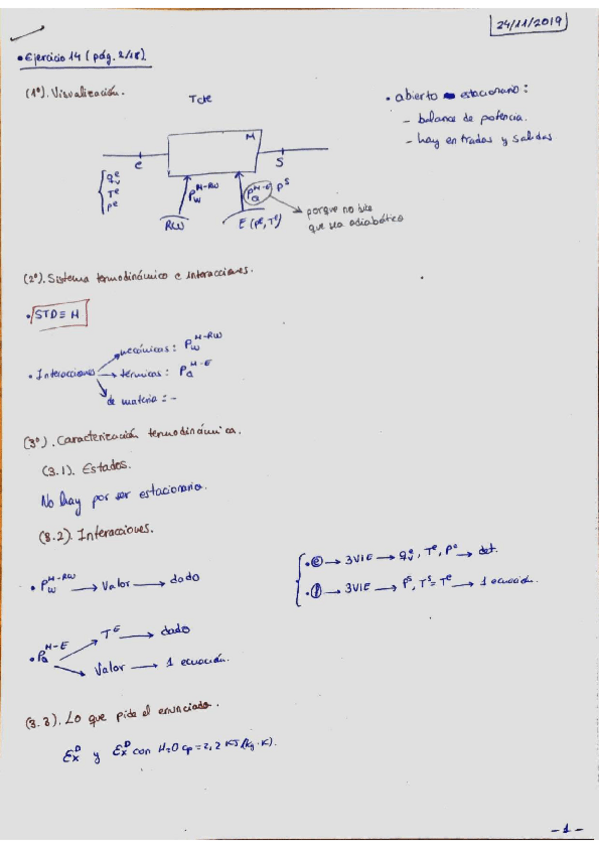 24/11/2019
• Ejercicio 14 (pág. 2/18).
(1º). Visualización.
Tcte
M
e
S
q_v^e
T^e
P^e
P_W^{M-RW}
P_Q^{M-E}
P^s
RW
E (P^E, T^E)
porque no dice
que sea adiabático
• abierto estacionario:
- balance de potencia.
- hay entradas y salidas
(2º). Sistema termodinámico e interacciones.
• STD ≡ M
• Interacciones
mecánicas: P_W^{M-RW}
térmicas: P_Q^{M-E}
de materia: -
(3º). Caracterización termodinámica.
(3.1). Estados.
No hay por ser estacionario.
(3.2). Interacciones.
• P_W^{M-RW} → Valor → dado
• P_Q^{M-E}
T^E → dado
Valor → 1 ecuación.
• e → 3VIE → q_v^e, T^e, P^e → det.
→ 3VIE → P^s, T^s = T^e → 1 ecuación.
(3.3). Lo que pide el enunciado.
Ex^D y Ex^D con M=0 cp=2,2 KJ/(kg·K).
- 1 -